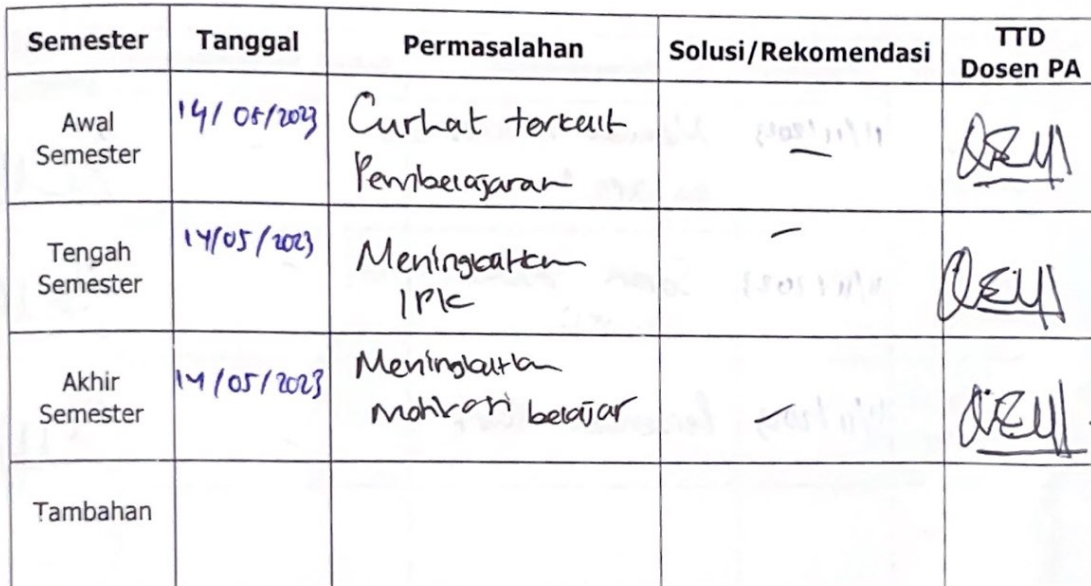 Semester Tanggal Permasalahan Solusi/Rekomendasi TTD Dosen PA
Awal Semester 14/05/2023 Curhat terkait Pembelajaran –
Tengah Semester 14/05/2023 Meningkatkan IPK –
Akhir Semester 14/05/2023 Meningkatkan motivasi belajar –
Tambahan